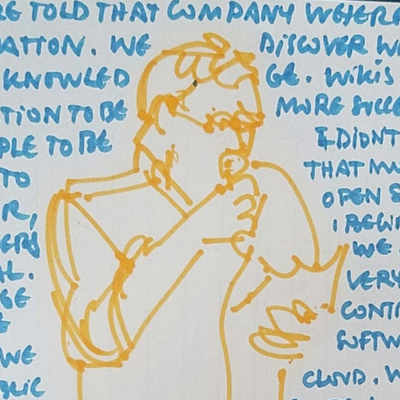 RE TOLD THAT COMPANY WE WERE
MATION. WE DISCOVER W
KNOWLED GE. WIKIS
TION TO BE MORE SUCCE
PLE TO BE I DIDNT
TO THAT M
R, OPEN S
ERS I BEGI
AL. WE
GE VERY
E CONT
WE SOFTW
BLIC CLOUD. W